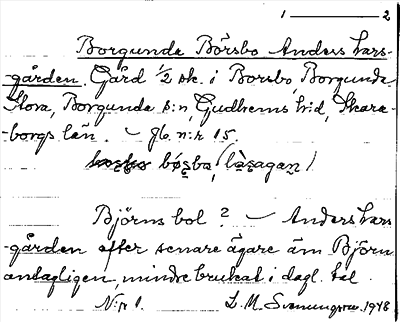 1 ——— 2
Borgunda Börsbo Anders Lars-
gården. Gård 1/2 sk. i Borsbo, Borgunda
Stora, Borgunda s:n, Gudhems h:d, Skara-
borgs län. – Jb. n:r 15.
bo̱ṣbo (làsagaṇ)
Björns bol? – Anders Lars
-gården efter senare ägare än Björn
antagligen, mindre brukat i dagl. tal.
N:r 1. L. M. Svenungsson 1948